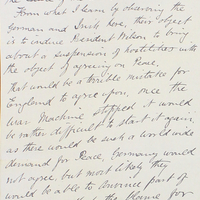 From what I learn by observing the
German and Irish here, their object
is to induce President Wilson to bring
about a suspension of hostilities with
the object of agreeing on Peace.
that would be a terrible mistake for
England to agree upon, once the
War Machine stopped it would
be rather difficult to start it again,
as there would be such a world wide
demand for Peace, Germany would
not agree, but most likely they
would be able to convince part of
the blame for